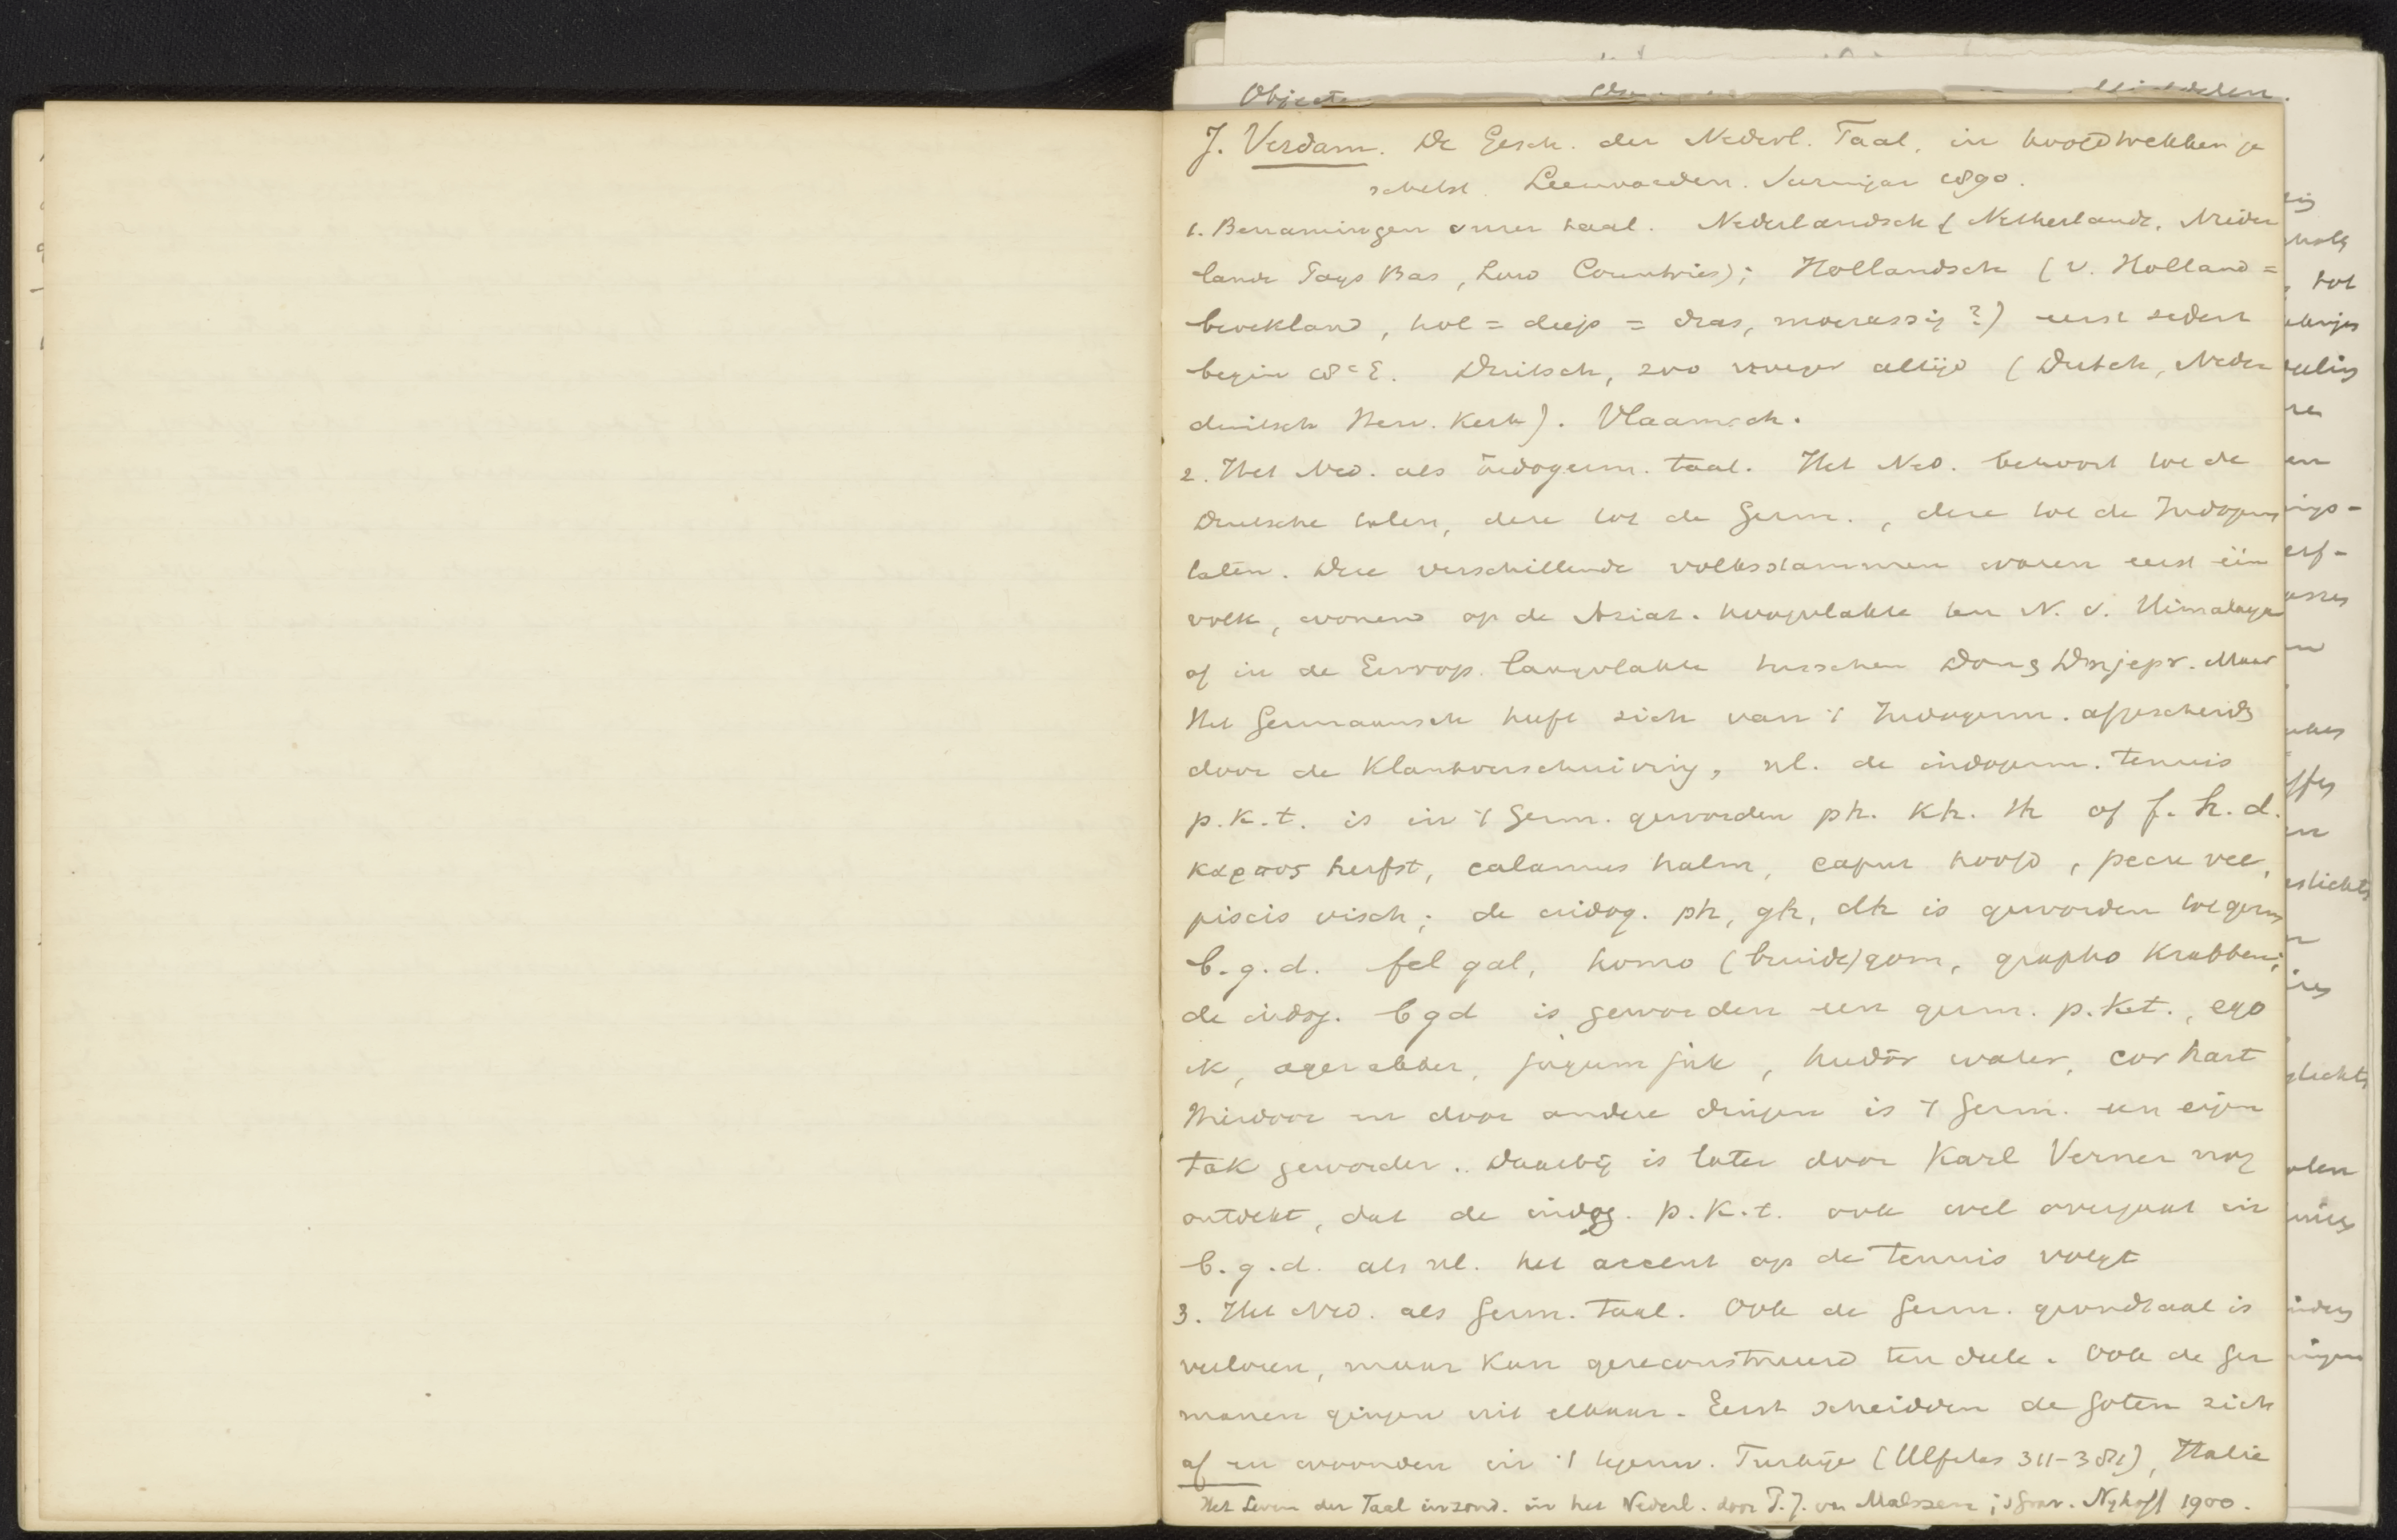 J. Verdam. De Gesch. der Nederl. Taal, in hoofdtrekken ge
schetst. Leeuwarden. Suringar 1890.
1. Benamingen onzer taal. Nederlandsch (Netherlands, Nieder
lande Pays Bas, Low Countries); Hollandsch (v. Holland =
broekland, hol = diep = dras, moerassig?) eerst sedert
begin 18e E. Duitsch, zoo vroeger altijd (Dutch, Neder
duitsch Herv. Kerk). Vlaamsch.
2. Het Ned. als indogerm. taal. Het Ned. behoort tot de
Duitsche talen, deze tot de Germ., deze tot de Indogerm
talen. Deze verschillende volksstammen waren eerst één
volk, wonend op de Aziat. hoogvlakte ten N. v. Himalaya
of in de Europ. laagvlakte tusschen Don en Dnjepr. Maar
Het Germaansch heeft zich van 't Indogerm. afgescheiden
door de Klankverschuiving, nl. de indogerm. tenuis
p.k.t. is in 't Germ. geworden ph. kh. th of f. h. d.
καρπος herfst, calamus halm, caput hoofd, pecu vee,
piscis visch; de indog. ph, gh, dh is geworden tot germ
b.g.d. fel gal, homo (bruide)gom, grapho krabben;
de indog. b g d is geworden een germ. p.k.t., ego
ik, ager akker, jugum juk, hudōr water, cor hart
Hierdoor en door andere dingen is 't Germ. een eigen
tak geworden. Daarbij is later door Karl Verner nog
ontdekt, dat de indog. p.k.t. ook wel overgaat in
b.g.d. als nl. het accent op de tenuis volgt
3. Het Ned. als Germ. taal. Ook de Germ. grondtaal is
verloren, maar kan gereconstrueerd ten deele. Ook de Ger
manen gingen uit elkaar. Eerst scheidden de Goten zich
af en woonden in 't tegenw. Turkije (Ulfilas 311-381), Italie
Het Leven der Taal inzond. in het Nederl. door P.J. van Malssen; 's Grav. Nyhoff 1900.